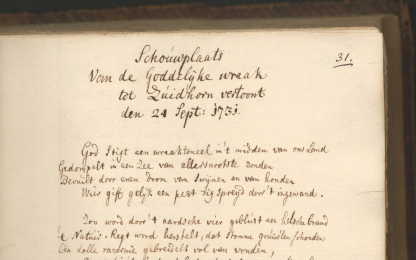 31.
Schouwplaats
Van de Goddelyke wraak
tot Zuidhorn vertoont
den 24 Sept: 1731.
God stigt een wraaktoneel in't midden van ons Land
Gedompelt in een Zee van allersnootste zonden
Bevuilt door even dron van Swynen en van honden
Wiens gift gelyk een pest zig spreyd door't ingewand.
Zou word door't aardsche vier geblust een helsche brand
't Natuir-Regt word herstelt, dat stomme gruwelen schonden
Een dolle razernie gebreidelt vol van vonden,